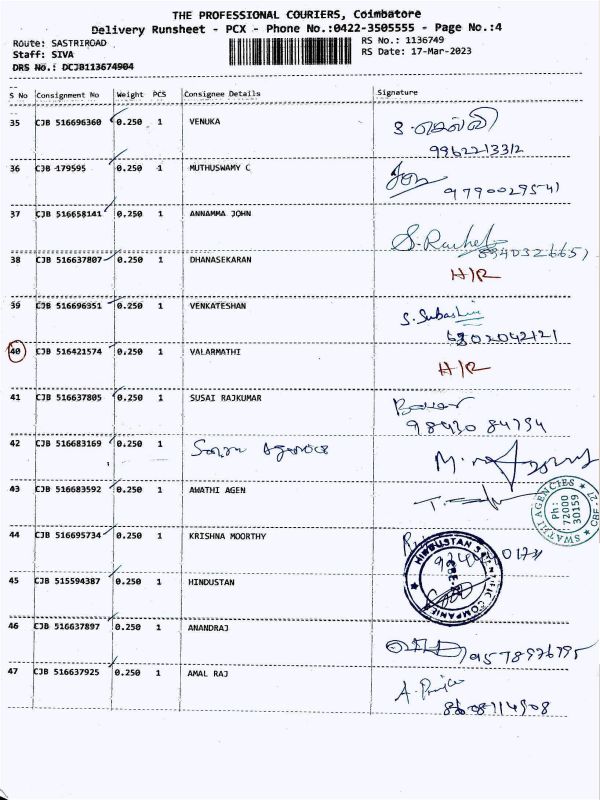 THE PROFESSIONAL COURIERS, Coimbatore
Delivery Runsheet - PCX - Phone No.:0422-3505555 - Page No.:4
Route: SASTRIROAD
RS No.: 1136749
Staff: SIVA
RS Date: 17-Mar-2023
DRS No.: DCJB113674904
S No Consignment No Weight PCS Consignee Details Signature
35 CJB 516696360 0.250 1 VENUKA
9962213312
36 CJB 179595 0.250 1 MUTHUSWAMY C
9790029541
37 CJB 516658141 0.250 1 ANNAMMA JOHN
S. Rachel
8940326657
38 CJB 516637807 0.250 1 DHANASEKARAN
H/R
39 CJB 516696351 0.250 1 VENKATESHAN
S. Subashini
40 CJB 516421574 0.250 1 VALARMATHI
H/R
41 CJB 516637805 0.250 1 SUSAI RAJKUMAR
98430 84794
42 CJB 516683169 0.250 1
43 CJB 516683592 0.250 1 AWATHI AGEN
SWATHI AGENCIES
Ph:
72000
30159
CBE-27
44 CJB 516695734 0.250 1 KRISHNA MOORTHY
HINDUSTAN SCIENTIFIC COMPANIES
45 CJB 515594387 0.250 1 HINDUSTAN
46 CJB 516637897 0.250 1 ANANDRAJ
9578976795
47 CJB 516637925 0.250 1 AMAL RAJ
8608114908